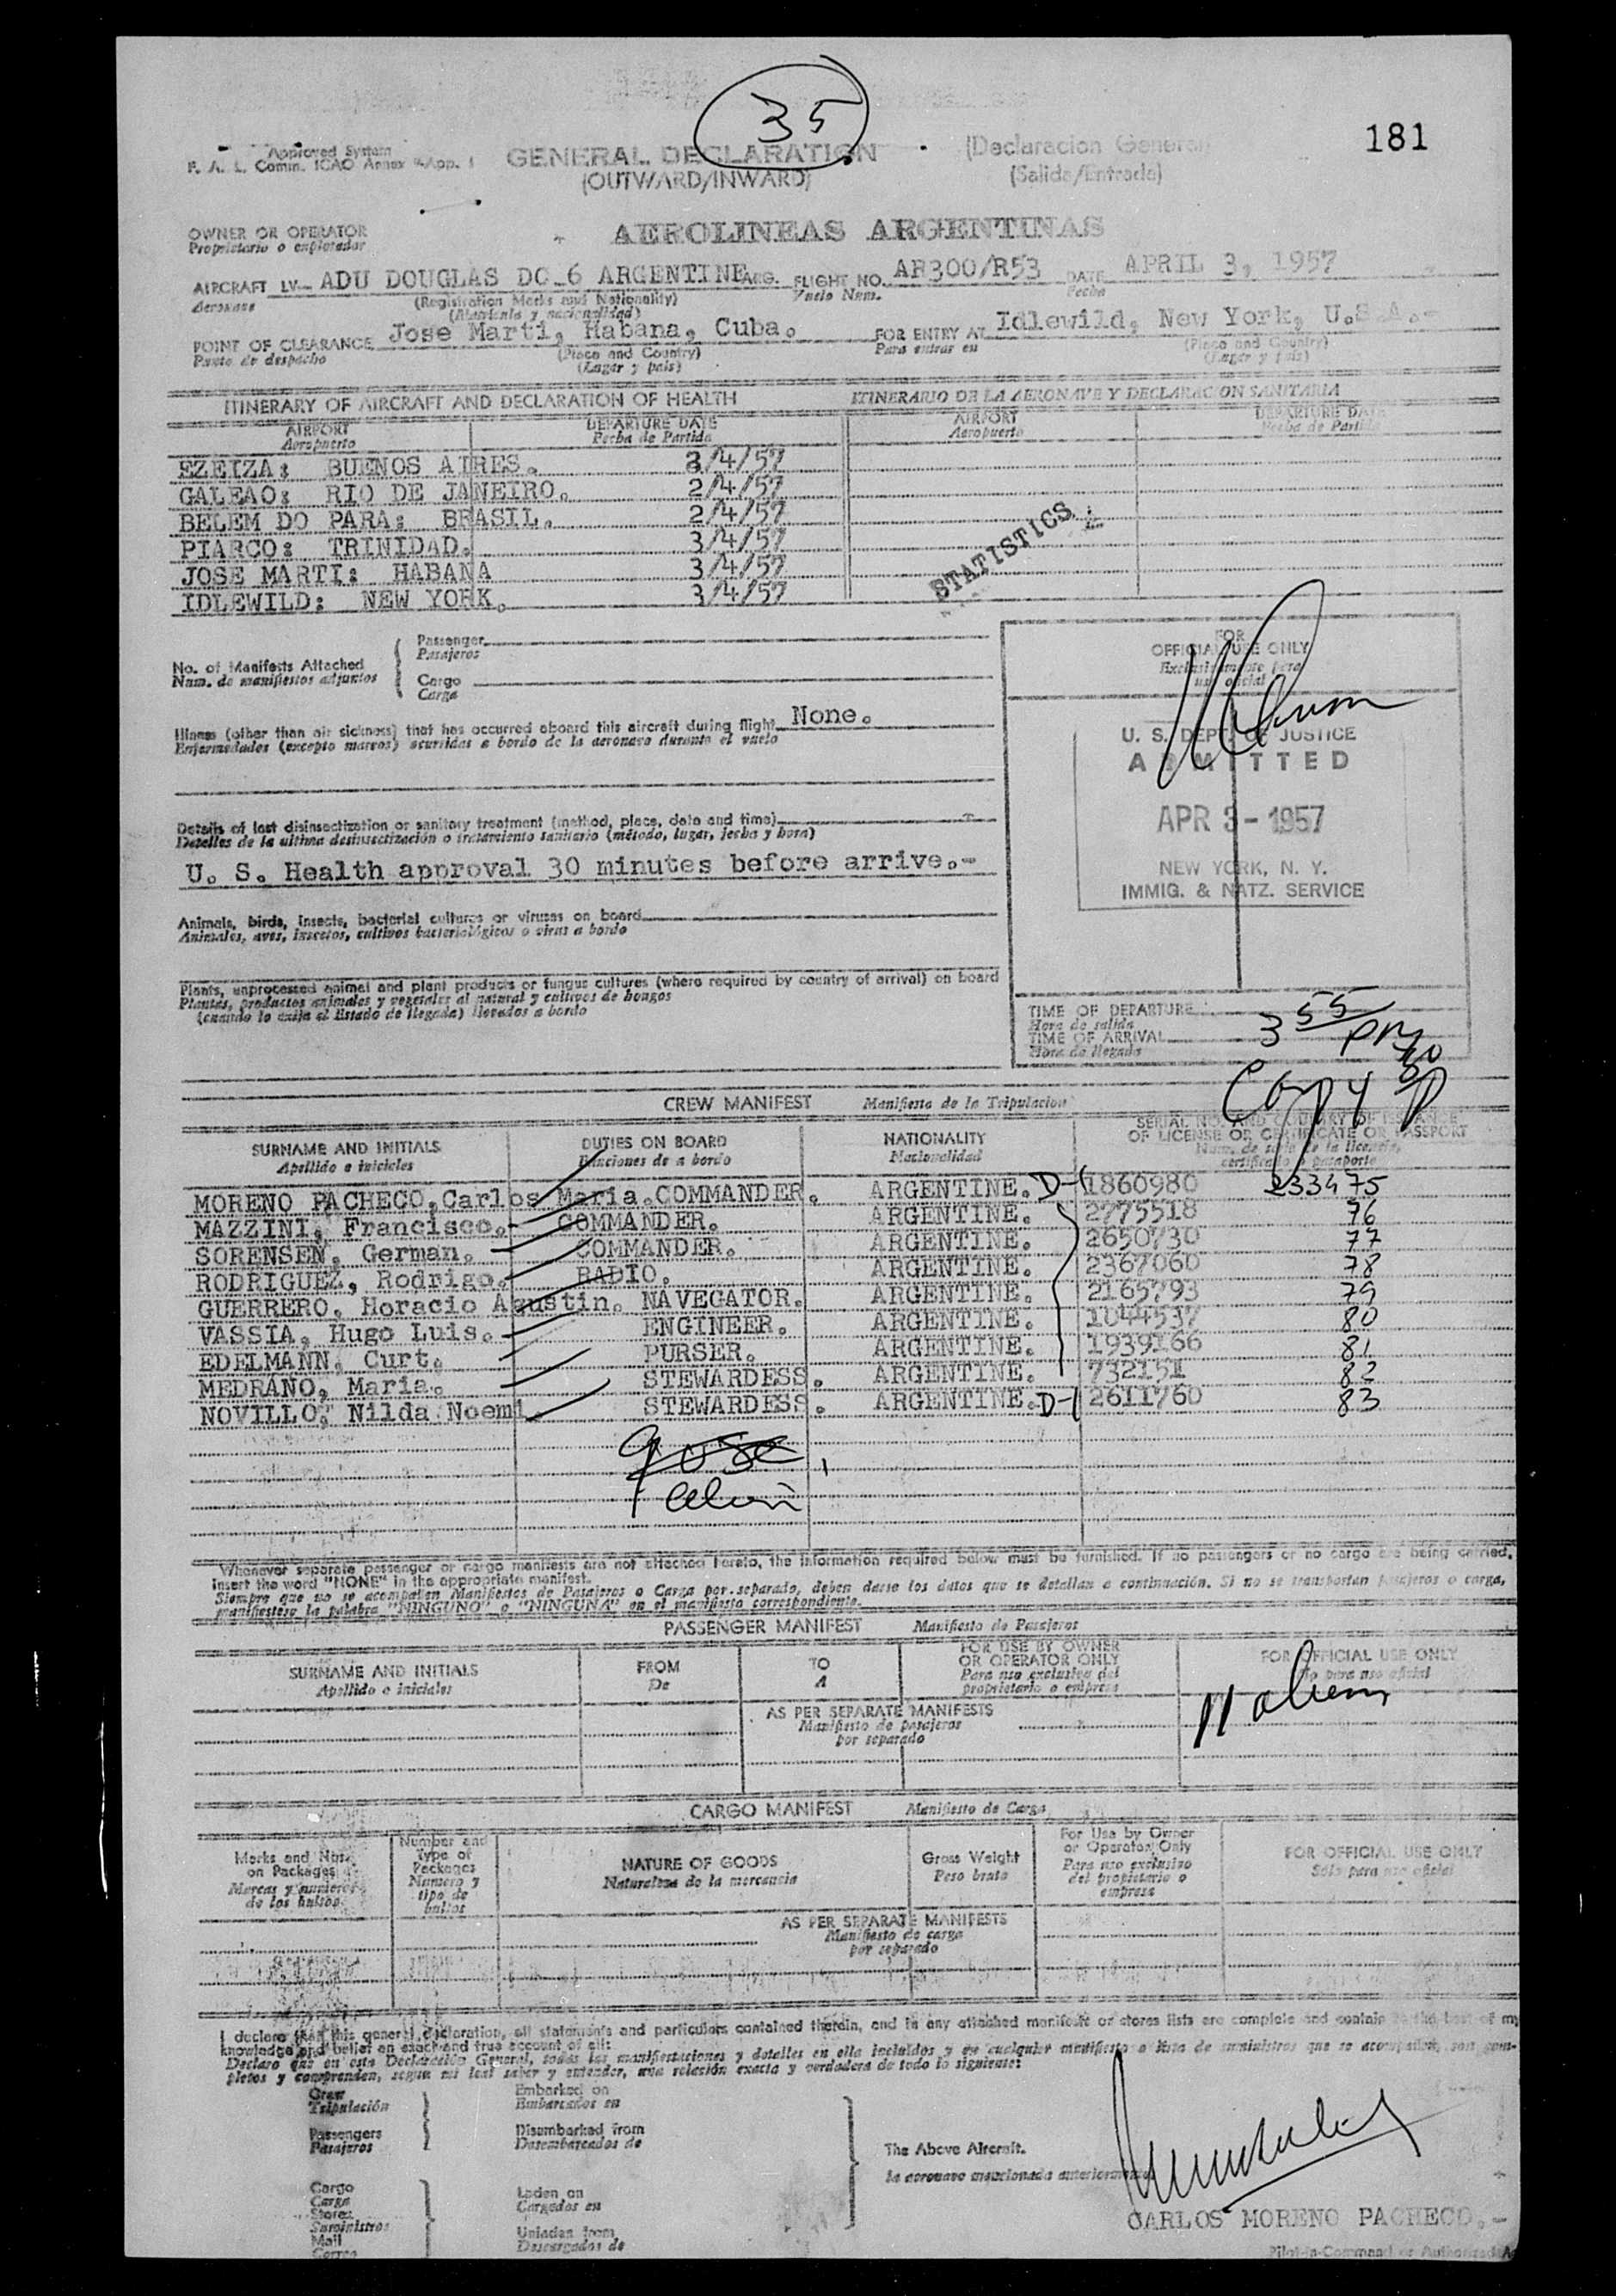 35
181
Approved System
F. A. L. Comm. ICAO Annex 9 App. 1
GENERAL DECLARATION
(Declaracion General)
(OUTWARD/INWARD)
(Salida/Entrada)
OWNER OR OPERATOR
Propietario o explotador
AEROLINEAS ARGENTINAS
AIRCRAFT LV- ADU DOUGLAS DC-6 ARGENTINE ARG. FLIGHT NO. AR300/R53 DATE APRIL 3, 1957
Aeronave
(Registration Marks and Nationality)
Vuelo Num.
Fecha
(Matricula y nacionalidad)
POINT OF CLEARANCE Jose Marti, Habana, Cuba. FOR ENTRY AT Idlewild, New York, U.S.A.-
Punto de despacho
(Place and Country)
Para entrar en
(Place and Country)
(Lugar y pais)
(Lugar y pais)
ITINERARY OF AIRCRAFT AND DECLARATION OF HEALTH
ITINERARIO DE LA AERONAVE Y DECLARACION SANITARIA
AIRPORT
DEPARTURE DATE
AIRPORT
DEPARTURE DATE
Aeropuerto
Fecha de Partida
Aeropuerto
Fecha de Partida
EZEIZA: BUENOS AIRES. 2/4/57
GALEAO: RIO DE JANEIRO. 2/4/57
BELEM DO PARA: BRASIL. 2/4/57
PIARCO: TRINIDAD. 3/4/57
JOSE MARTI: HABANA 3/4/57
IDLEWILD: NEW YORK. 3/4/57
STATISTICS
No. of Manifests Attached
Num. de manifiestos adjuntos
Passenger
Pasajeros
Cargo
Carga
FOR
OFFICIAL USE ONLY
Exclusivamente para
uso oficial
Illness (other than air sickness) that has occurred aboard this aircraft during flight None.
Enfermedades (excepto mareos) ocurridas a bordo de la aeronave durante el vuelo
U. S. DEPT. OF JUSTICE
ADMITTED
APR 3 - 1957
NEW YORK, N. Y.
IMMIG. & NATZ. SERVICE
Details of last disinsectization or sanitary treatment (method, place, date and time)
Detalles de la ultima desinsectización o tratamiento sanitario (método, lugar, fecha y hora)
U. S. Health approval 30 minutes before arrive.-
Animals, birds, insects, bacterial cultures or viruses on board
Animales, aves, insectos, cultivos bacteriológicos o virus a bordo
Plants, unprocessed animal and plant products or fungus cultures (where required by country of arrival) on board
Plantas, productos animales y vegetales al natural y cultivos de hongos
(cuando lo exija el Estado de llegada) llevados a bordo
TIME OF DEPARTURE
Hora de salida
TIME OF ARRIVAL 3 55 pm
Hora de llegada
Copy
CREW MANIFEST Manifiesto de la Tripulacion
SURNAME AND INITIALS
Apellido e iniciales
DUTIES ON BOARD
Funciones de a bordo
NATIONALITY
Nacionalidad
SERIAL NO. AND COUNTRY OF ISSUANCE
OF LICENSE OR CERTIFICATE OR PASSPORT
Num. de serie de la licencia,
certificado o pasaporte
MORENO PACHECO, Carlos Maria. COMMANDER. ARGENTINE. D-1 1860980 233475
MAZZINI, Francisco.- COMMANDER. ARGENTINE. 2775518 76
SORENSEN, German. COMMANDER. ARGENTINE. 2650730 77
RODRIGUEZ, Rodrigo. RADIO. ARGENTINE. 2367060 78
GUERRERO, Horacio Agustin. NAVEGATOR. ARGENTINE. 2165793 79
VASSIA, Hugo Luis. ENGINEER. ARGENTINE. 1044537 80
EDELMANN, Curt. PURSER. ARGENTINE. 1939166 81
MEDRANO, Maria. STEWARDESS. ARGENTINE. 732151 82
NOVILLO, Nilda Noemi STEWARDESS. ARGENTINE. D-1 2611760 83
9
Whenever separate passenger or cargo manifests are not attached hereto, the information required below must be furnished. If no passengers or no cargo are being carried,
insert the word "NONE" in the appropriate manifest.
Siempre que no se acompañen Manifiestos de Pasajeros o Carga por separado, deben darse los datos que se detallan a continuación. Si no se transportan pasajeros o carga,
manifiestese la palabra "NINGUNO" o "NINGUNA" en el manifiesto correspondiente.
PASSENGER MANIFEST Manifiesto de Pasajeros
SURNAME AND INITIALS
Apellido e iniciales
FROM
De
TO
A
FOR USE BY OWNER
OR OPERATOR ONLY
Para uso exclusivo del
propietario o empresa
FOR OFFICIAL USE ONLY
Solo para uso oficial
AS PER SEPARATE MANIFESTS
Manifiesto de pasajeros
por separado
CARGO MANIFEST Manifiesto de Carga
Marks and Nos.
on Packages
Marcas y numeros
de los bultos
Number and
Type of
Packages
Numero y
tipo de
bultos
NATURE OF GOODS
Naturaleza de la mercancia
Gross Weight
Peso bruto
For Use by Owner
or Operator Only
Para uso exclusivo
del propietario o
empresa
FOR OFFICIAL USE ONLY
Solo para uso oficial
AS PER SEPARATE MANIFESTS
Manifiesto de carga
por separado
I declare that this general declaration, all statements and particulars contained therein, and in any attached manifest or stores lists are complete and contain to the best of my
knowledge and belief an exact and true account of all:
Declaro que en esta Declaración General, todas las manifestaciones y detalles en ella incluidos y en cualquier manifiesto o lista de suministros que se acompañen, son com-
pletos y comprenden, segun mi leal saber y entender, una relación exacta y verdadera de todo lo siguiente:
Crew
Tripulación
Passengers
Pasajeros
Embarked on
Embarcados en
Disembarked from
Desembarcados de
The Above Aircraft.
la aeronave mencionada anteriormente
Cargo
Carga
Stores
Suministros
Mail
Correo
Laden on
Cargados en
Unladen from
Descargados de
CARLOS MORENO PACHECO.-
Pilot-in-Command or Authorized